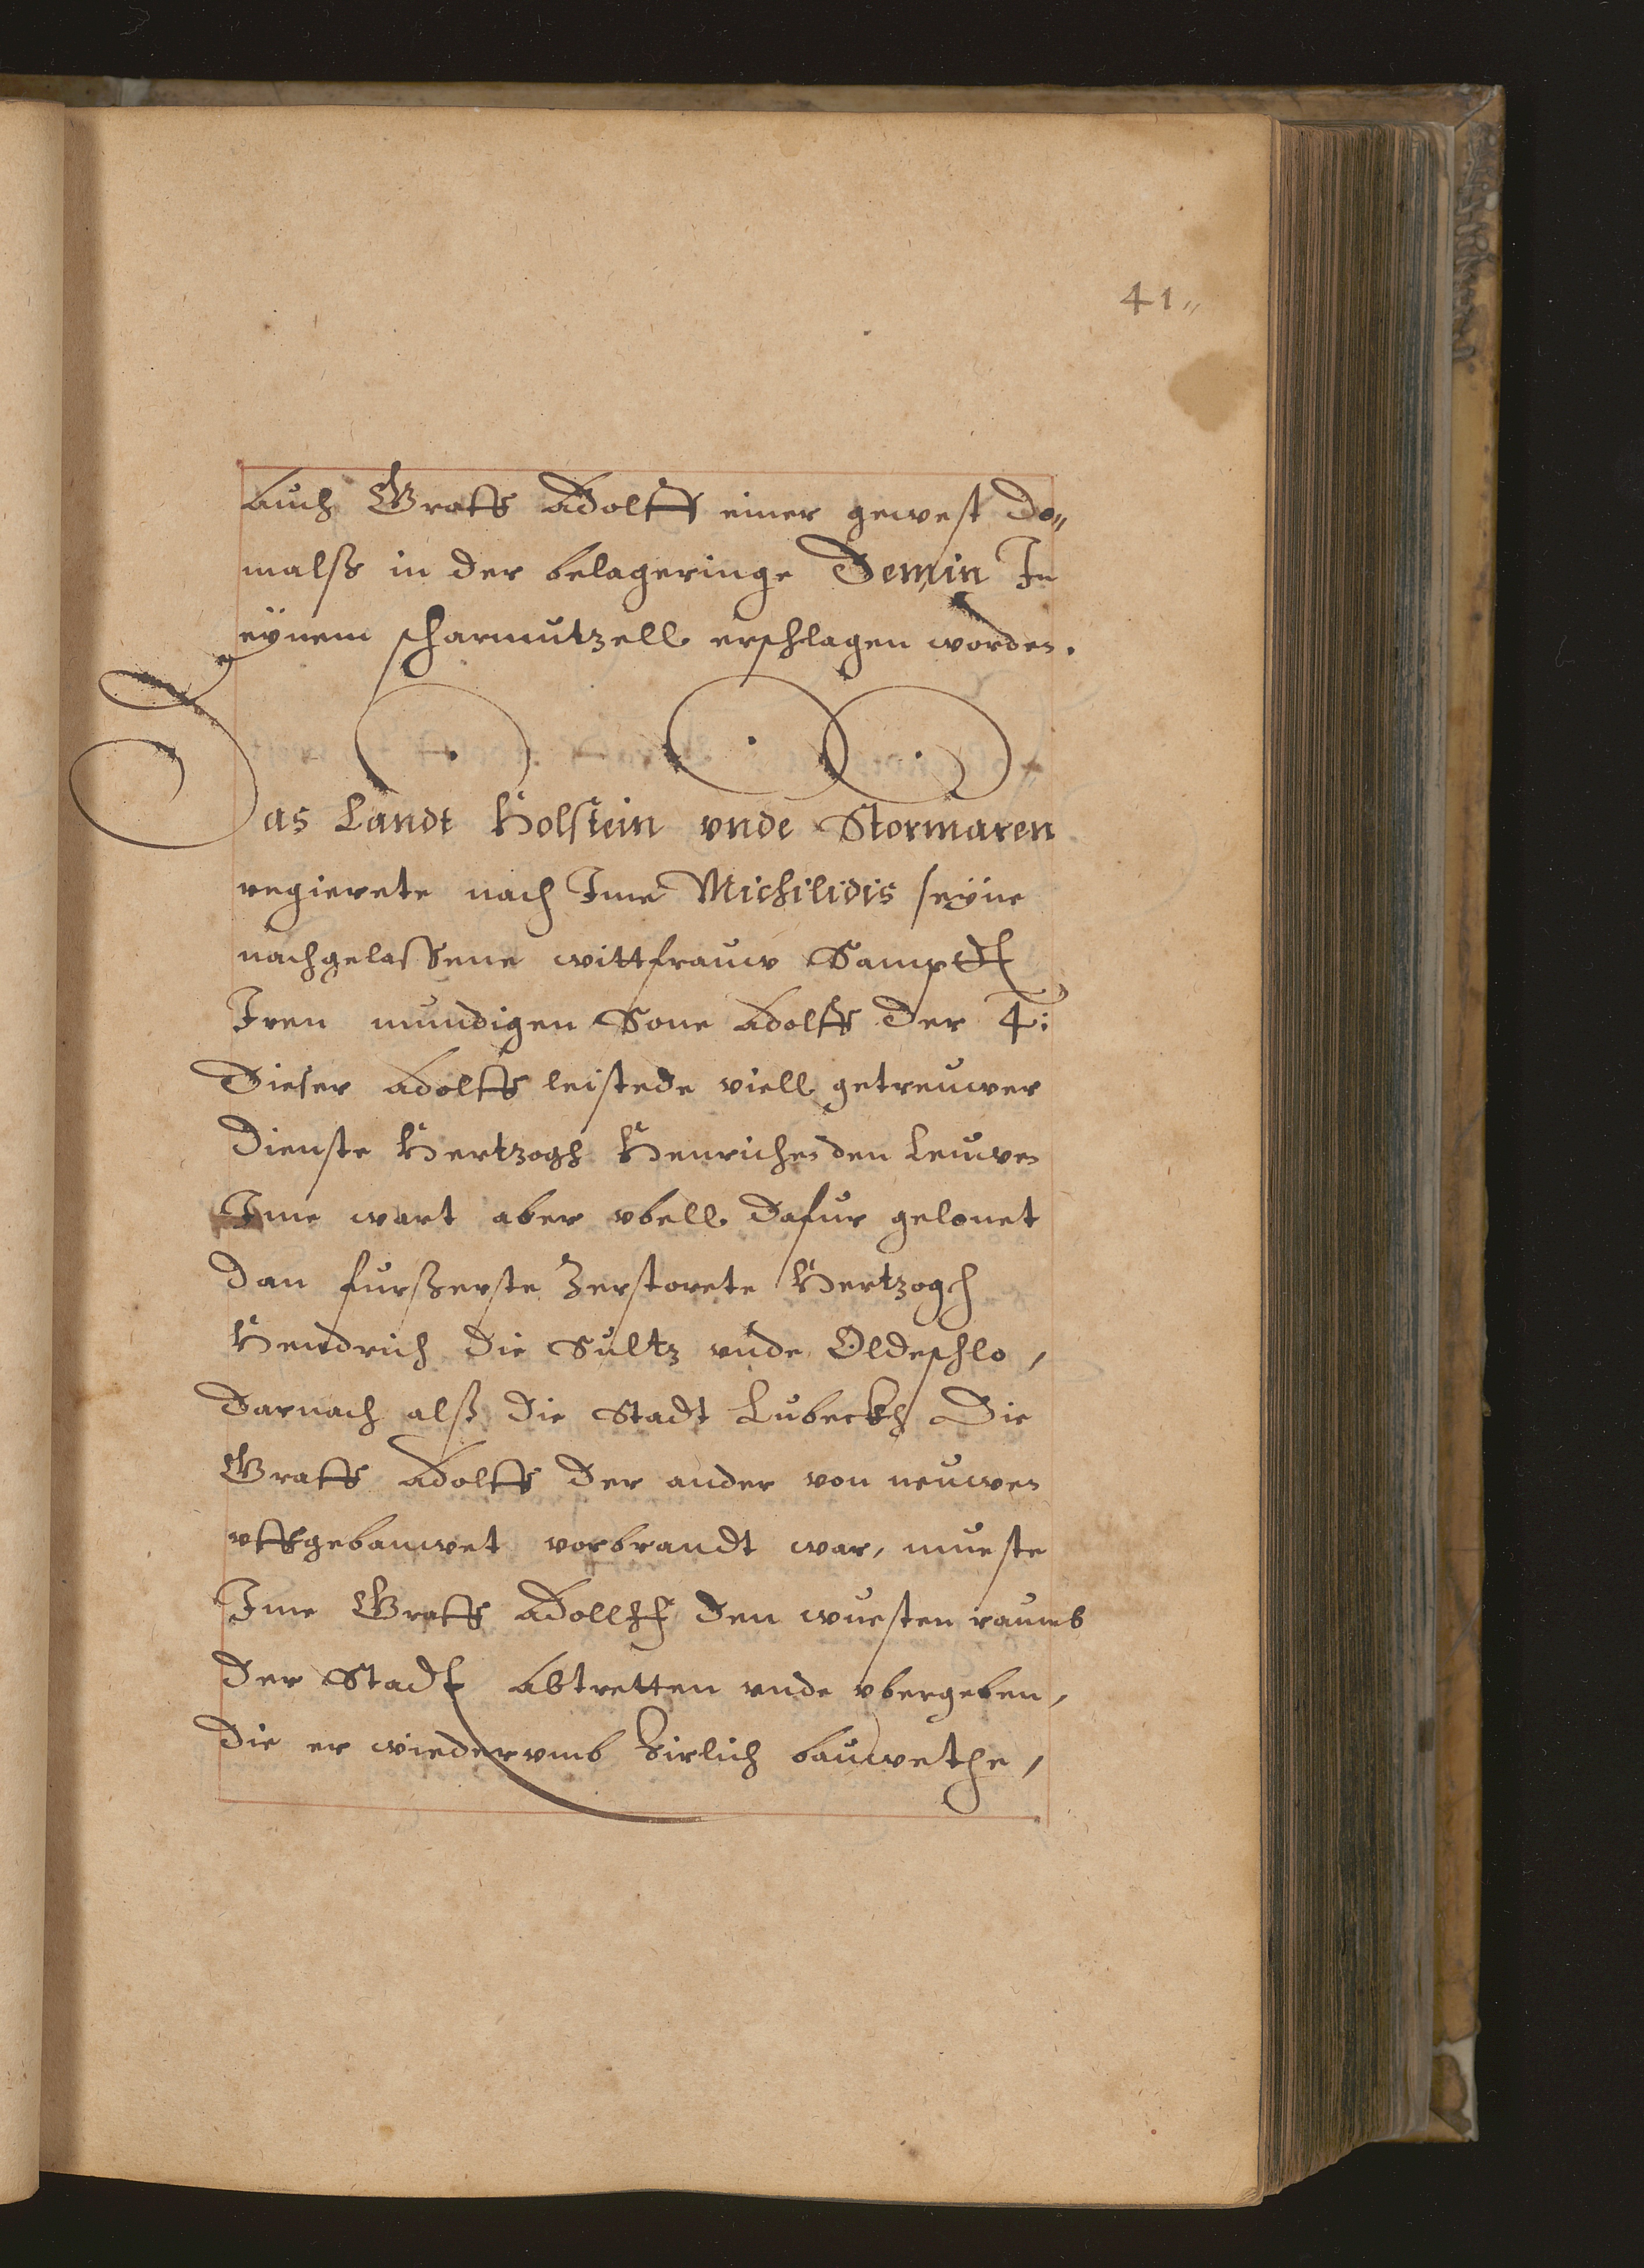 41〃
Auch Graff Adolff einer gewest Do〃
malß in der belageringe Demin In
eÿnem scharmutzell erschlagen worden.
Das Landt Holstein vnde Stormaren
regierete nach Ime Michilidis seÿne
nachgelassene wittfrauw Sampt
Iren mundigen Sone Adolff der 4:
Dieser Adolff leistede viell getreuwer
Dienste Hertzogh Henrichen den Leuwen
Ime wart aber vbell dafur gelonet
dan furßerste Zerstorete Hertzogh
Hendrich die Sultz vnde Oldeschlo,
Darnach alß die Stadt Lubeckh Die
Graff Adolff der ander von neuwen
vffgebauwet vorbrandt war, mueste
Ime Graff Adollff den wuesten raumb
der Stadt Abtretten vnde vbergeben,
die er wiedervmb Zirlich bauwethe,